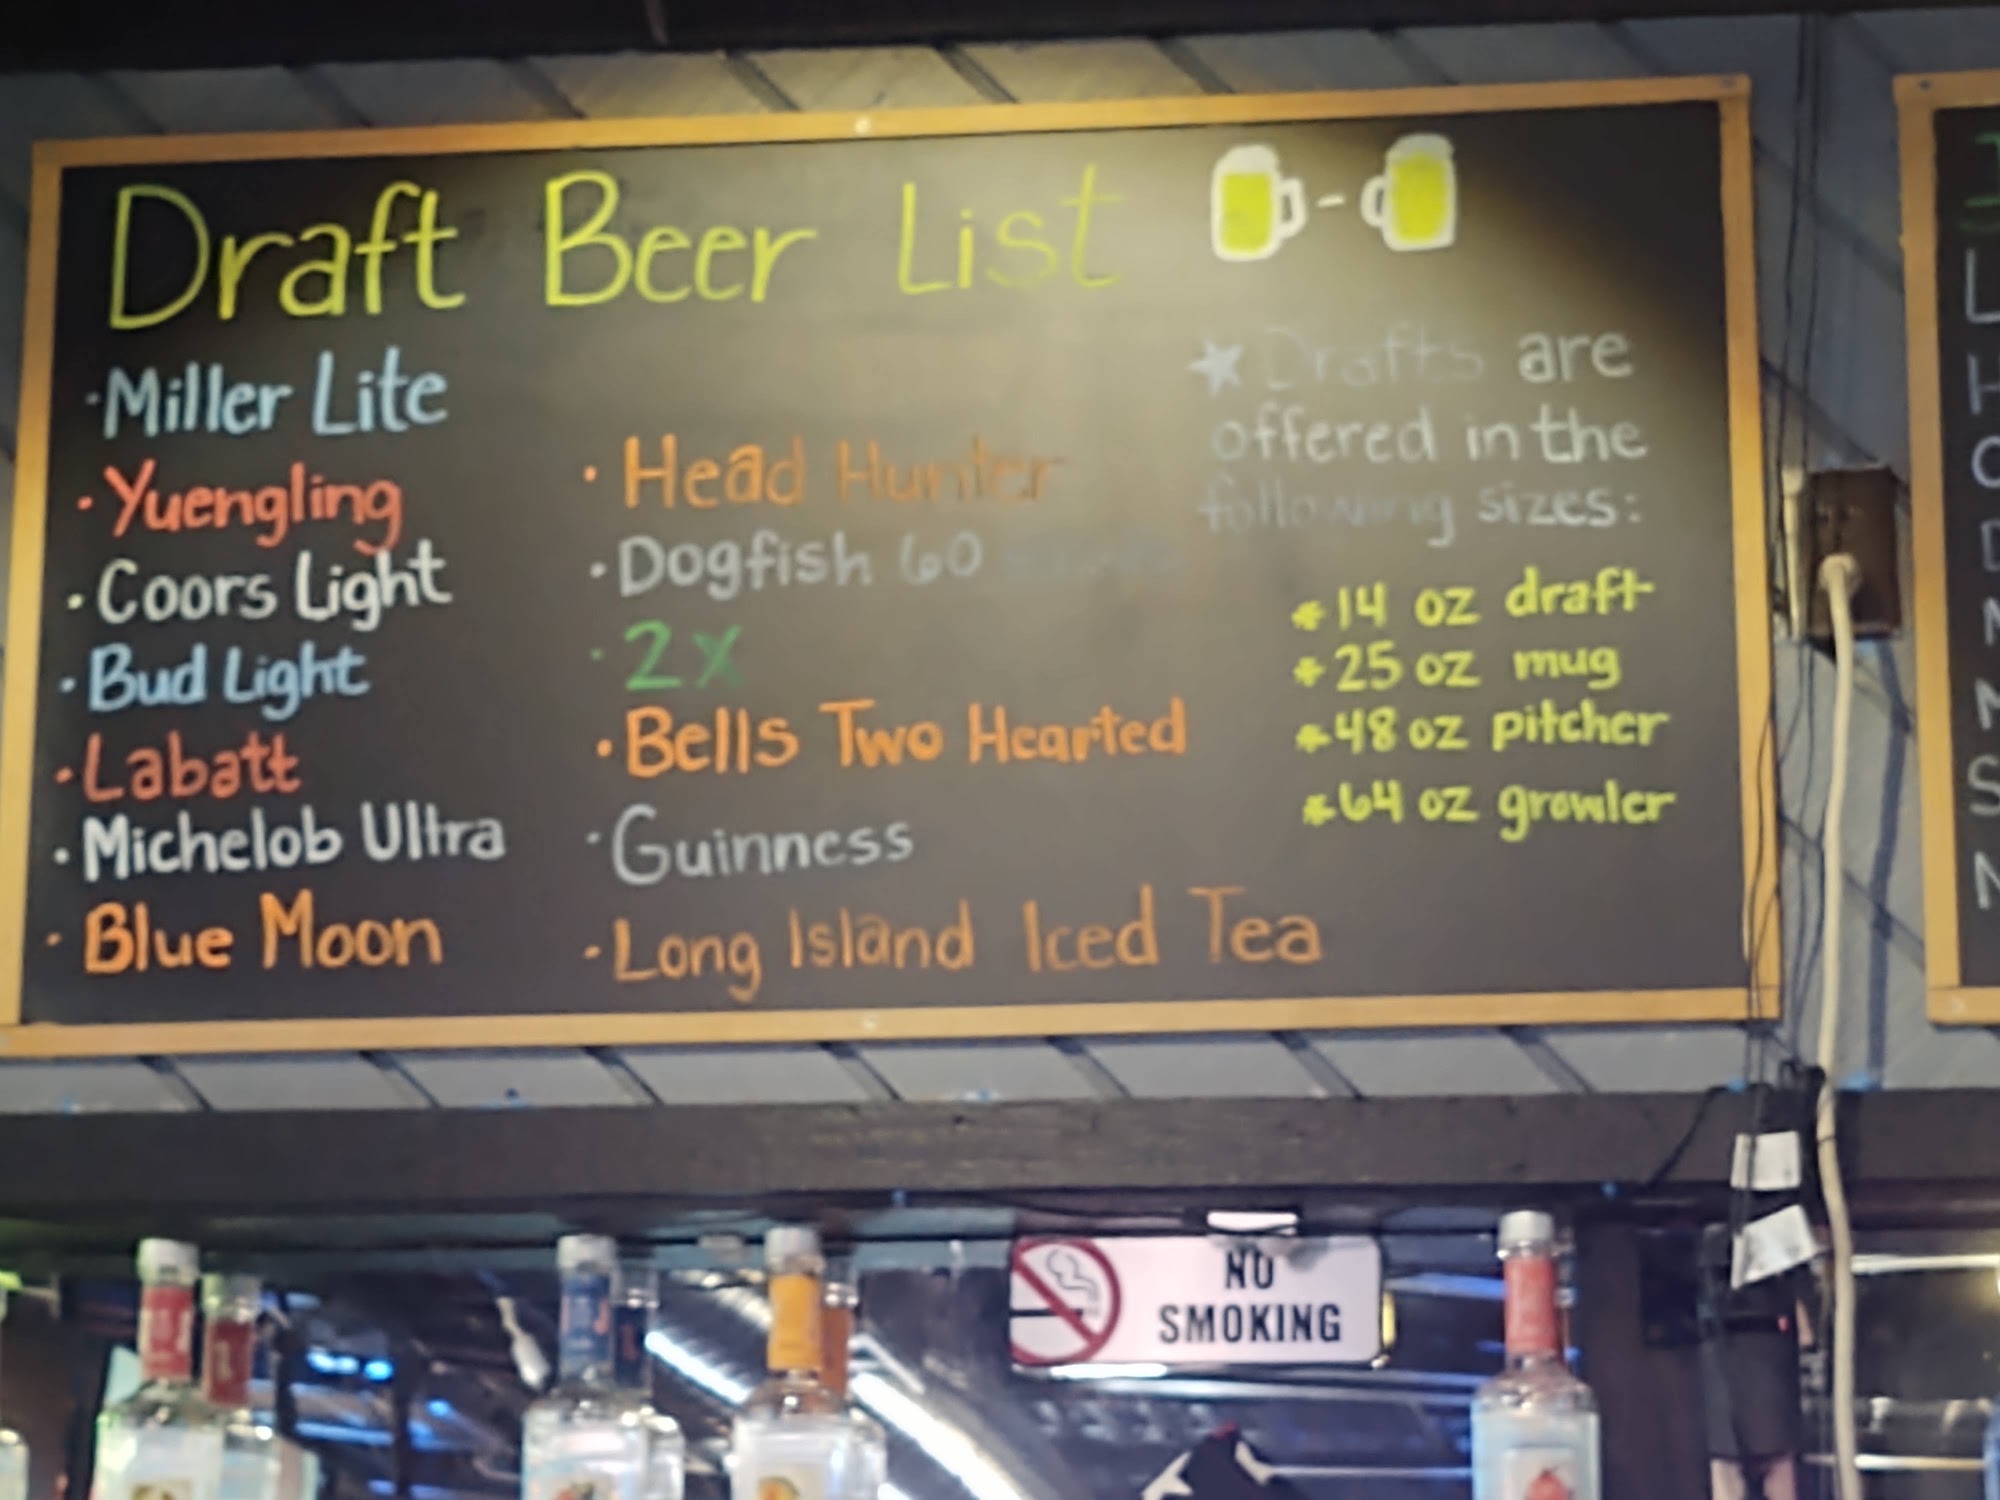 Draft Beer List
· Miller Lite
· Yuengling
· Coors Light
· Bud Light
· Labatt
· Michelob Ultra
· Blue Moon
· Head Hunter
· Dogfish 60
· 2x
· Bells Two Hearted
· Guinness
· Long Island Iced Tea
★ Drafts are
offered in the
following sizes:
* 14 oz draft
* 25 oz mug
* 48 oz pitcher
* 64 oz growler
NO
SMOKING